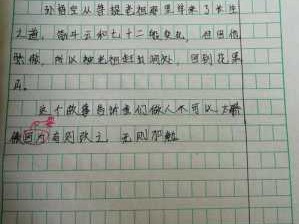 孙悟空从菩提老祖那里学来了长生
之道，筋斗云和七十二般变化，但因他
骄傲，所以被老祖赶出洞处，回到花果
山。
这个故事告诉我们做人不可以太骄
傲，有则改之，无则加勉